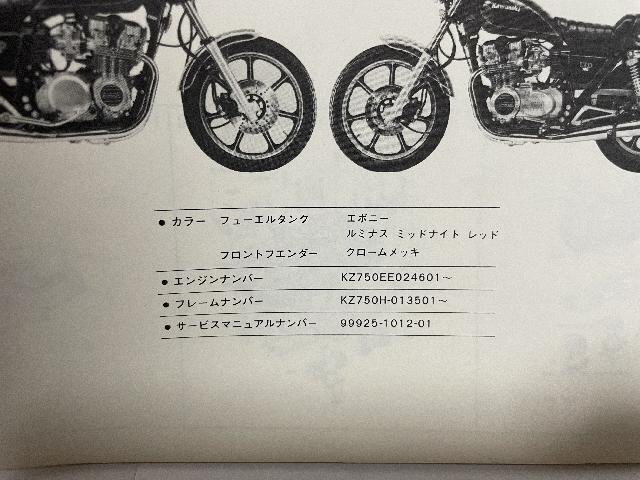 Kawasaki
● カラー フューエルタンク エボニー
ルミナス ミッドナイト レッド
フロントフエンダー クロームメッキ
● エンジンナンバー KZ750EE024601〜
● フレームナンバー KZ750H-013501〜
● サービスマニュアルナンバー 99925-1012-01